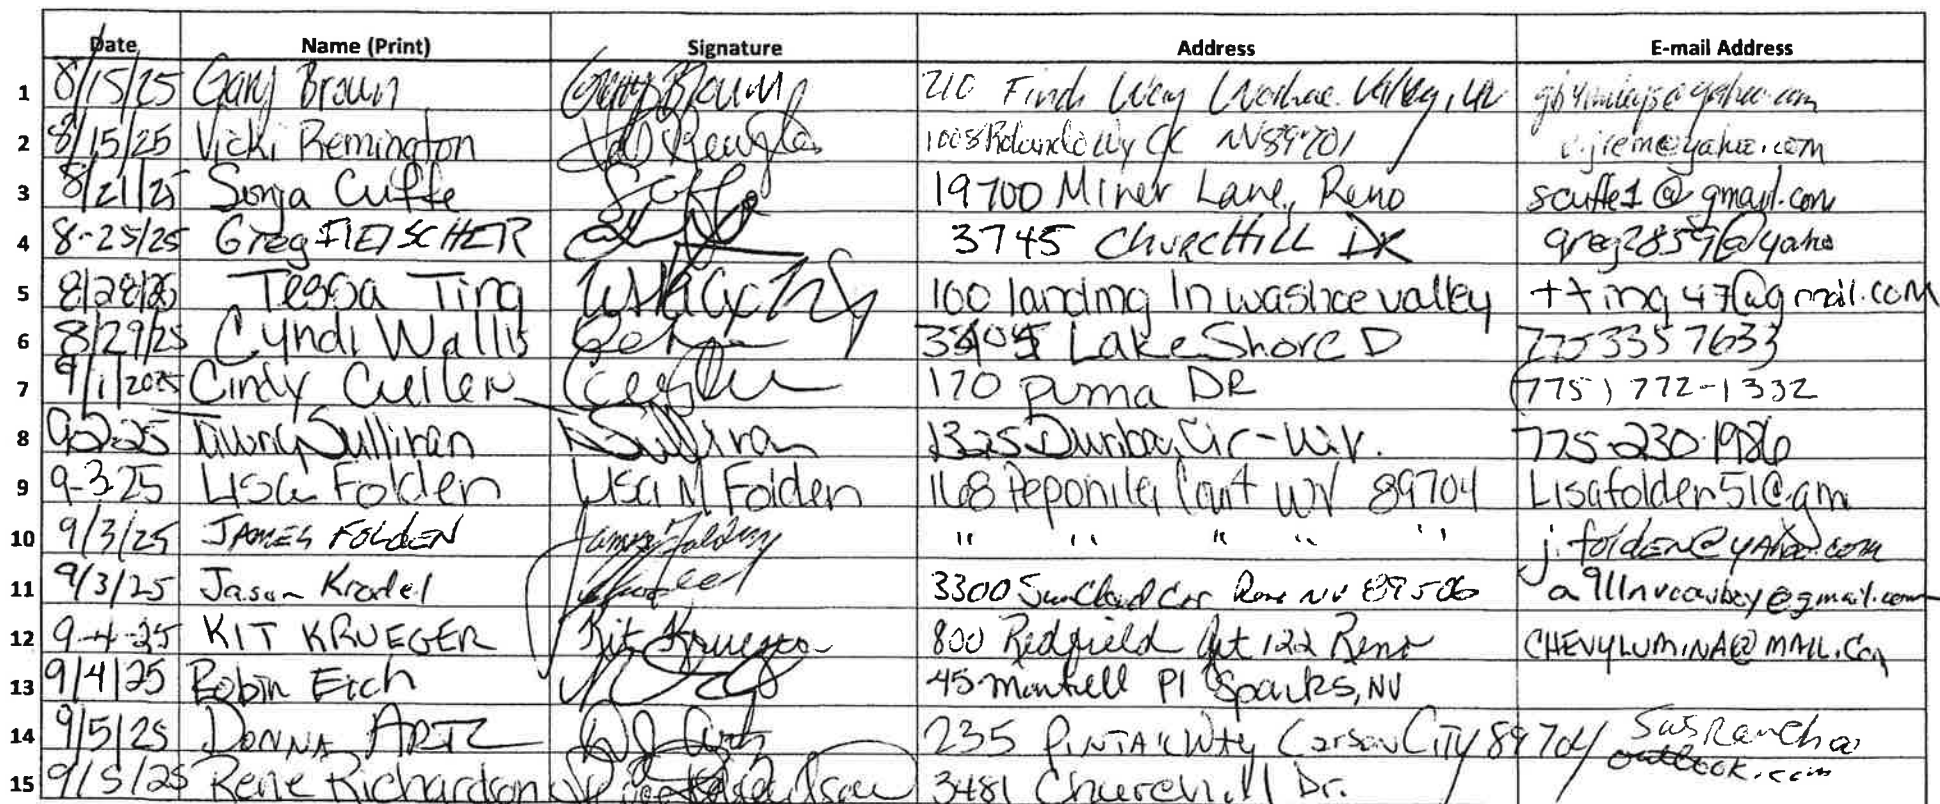 Date Name (Print) Signature Address E-mail Address
1 8/15/25 Gary Brown Gary Brown 210 Finch Way Washoe Valley, NV
2 8/15/25 Vicki Remington 1008 Rolando Wy CC NV 89701 vjrem@yahoo.com
3 8/21/25 Sonja Cuffe 19700 Miner Lane, Reno scuffe1@gmail.com
4 8-25/25 Greg FlEISCHER 3745 CHURCHILL DR greg2859@yaho
5 8/28/25 Tessa Ting 100 landing ln washoe valley tting47@gmail.com
6 8/29/25 Cyndi Wallis Lake Shore D 775 335 7633
7 9/1/2025 Cindy Cullen 170 puma DR (775) 772-1332
8 9-2-25 Sullivan Sullivan 1325 Dunbar Cir - W.V. 775-230-1986
9 9-3-25 Lisa Folden Lisa M Folden WV 89704 Lisafolden51@gm
10 9/3/25 JAMES FOLDEN James Folden " " " " " j.folden@yahoo.com
11 9/3/25 Jason Krodel 3300 Sun Cloud Cir Reno NV 89506 a911nvcowboy@gmail.com
12 9-4-25 KIT KRUEGER Kit Krueger 800 Redfield Apt 122 Reno CHEVYLUMINA@MAIL.Com
13 9/4/25 Robin Pl Sparks, NV
14 9/5/25 DONNA ARTZ 235 PINTAIL Way Carson City 89704 SusRanch@
outlook.com
15 9/5/25 Rene Richardson Rene Richardson 3481 Churchill Dr.